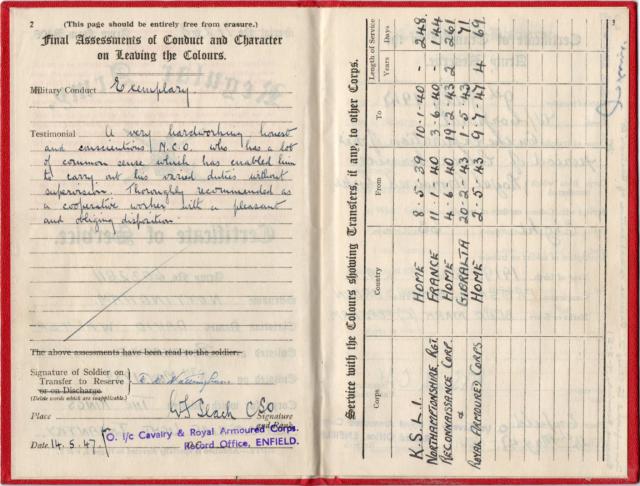 2 (This page should be entirely free from erasure.)
Final Assessments of Conduct and Character
on Leaving the Colours.
Military Conduct Exemplary
Testimonial A very hardworking honest
and conscientious N.C.O. who has a lot
of common sense which has enabled him
to carry out his varied duties without
supervision. Thoroughly recommended as
a cooperative worker with a pleasant
and obliging disposition
The above assessments have been read to the soldier.
Signature of Soldier on
Transfer to Reserve
or on Discharge
(Delete words which are inapplicable.)
Place
Signature
and Rank
Date 14.5.47
O. i/c Cavalry & Royal Armoured Corps.
Record Office, ENFIELD.
3
Service with the Colours showing Transfers, if any, to other Corps.
Corps Country From To Length of Service
Years Days
K.S.L.I. HOME 8-5-39 10-1-40 - 248
NORTHAMPTONSHIRE RGT. FRANCE 11-1-40 3-6-40 144
RECONNAISSANCE CORP. HOME 4-6-40 19-2-43 2 261
& GIBRALTA 20-2-43 1-5-43 71
ROYAL ARMOURED CORPS HOME 2-5-43 9-7-47 4 69